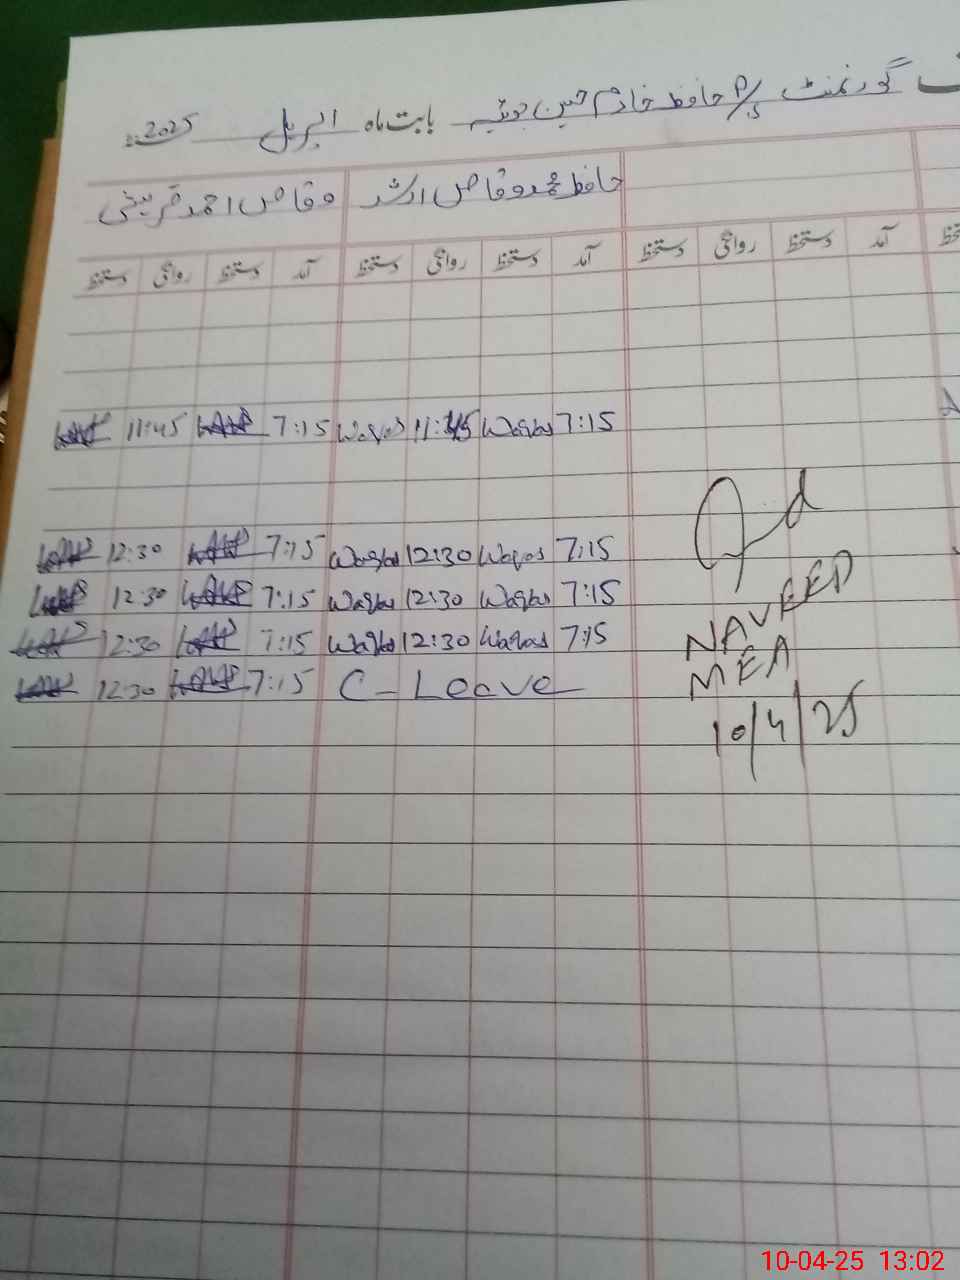 گورنمنٹ P/S حافظ خادم حسین جوئیہ بابت ماہ اپریل 2025ء
حافظ محمد وقاص ارشد وقاص احمد قریشی
آمد دستخط روانگی دستخط آمد دستخط روانگی دستخط آمد دستخط روانگی دستخط
11:45 7:15 Waqas 11:45 Waqas 7:15
12:30 7:15 Waqas 12:30 Waqas 7:15
12:30 7:15 Waqas 12:30 Waqas 7:15
12:30 7:15 Waqas 12:30 Waqas 7:15
12:30 7:15 C-Leave
NAVEED
MEA
10/4/25
10-04-25 13:02